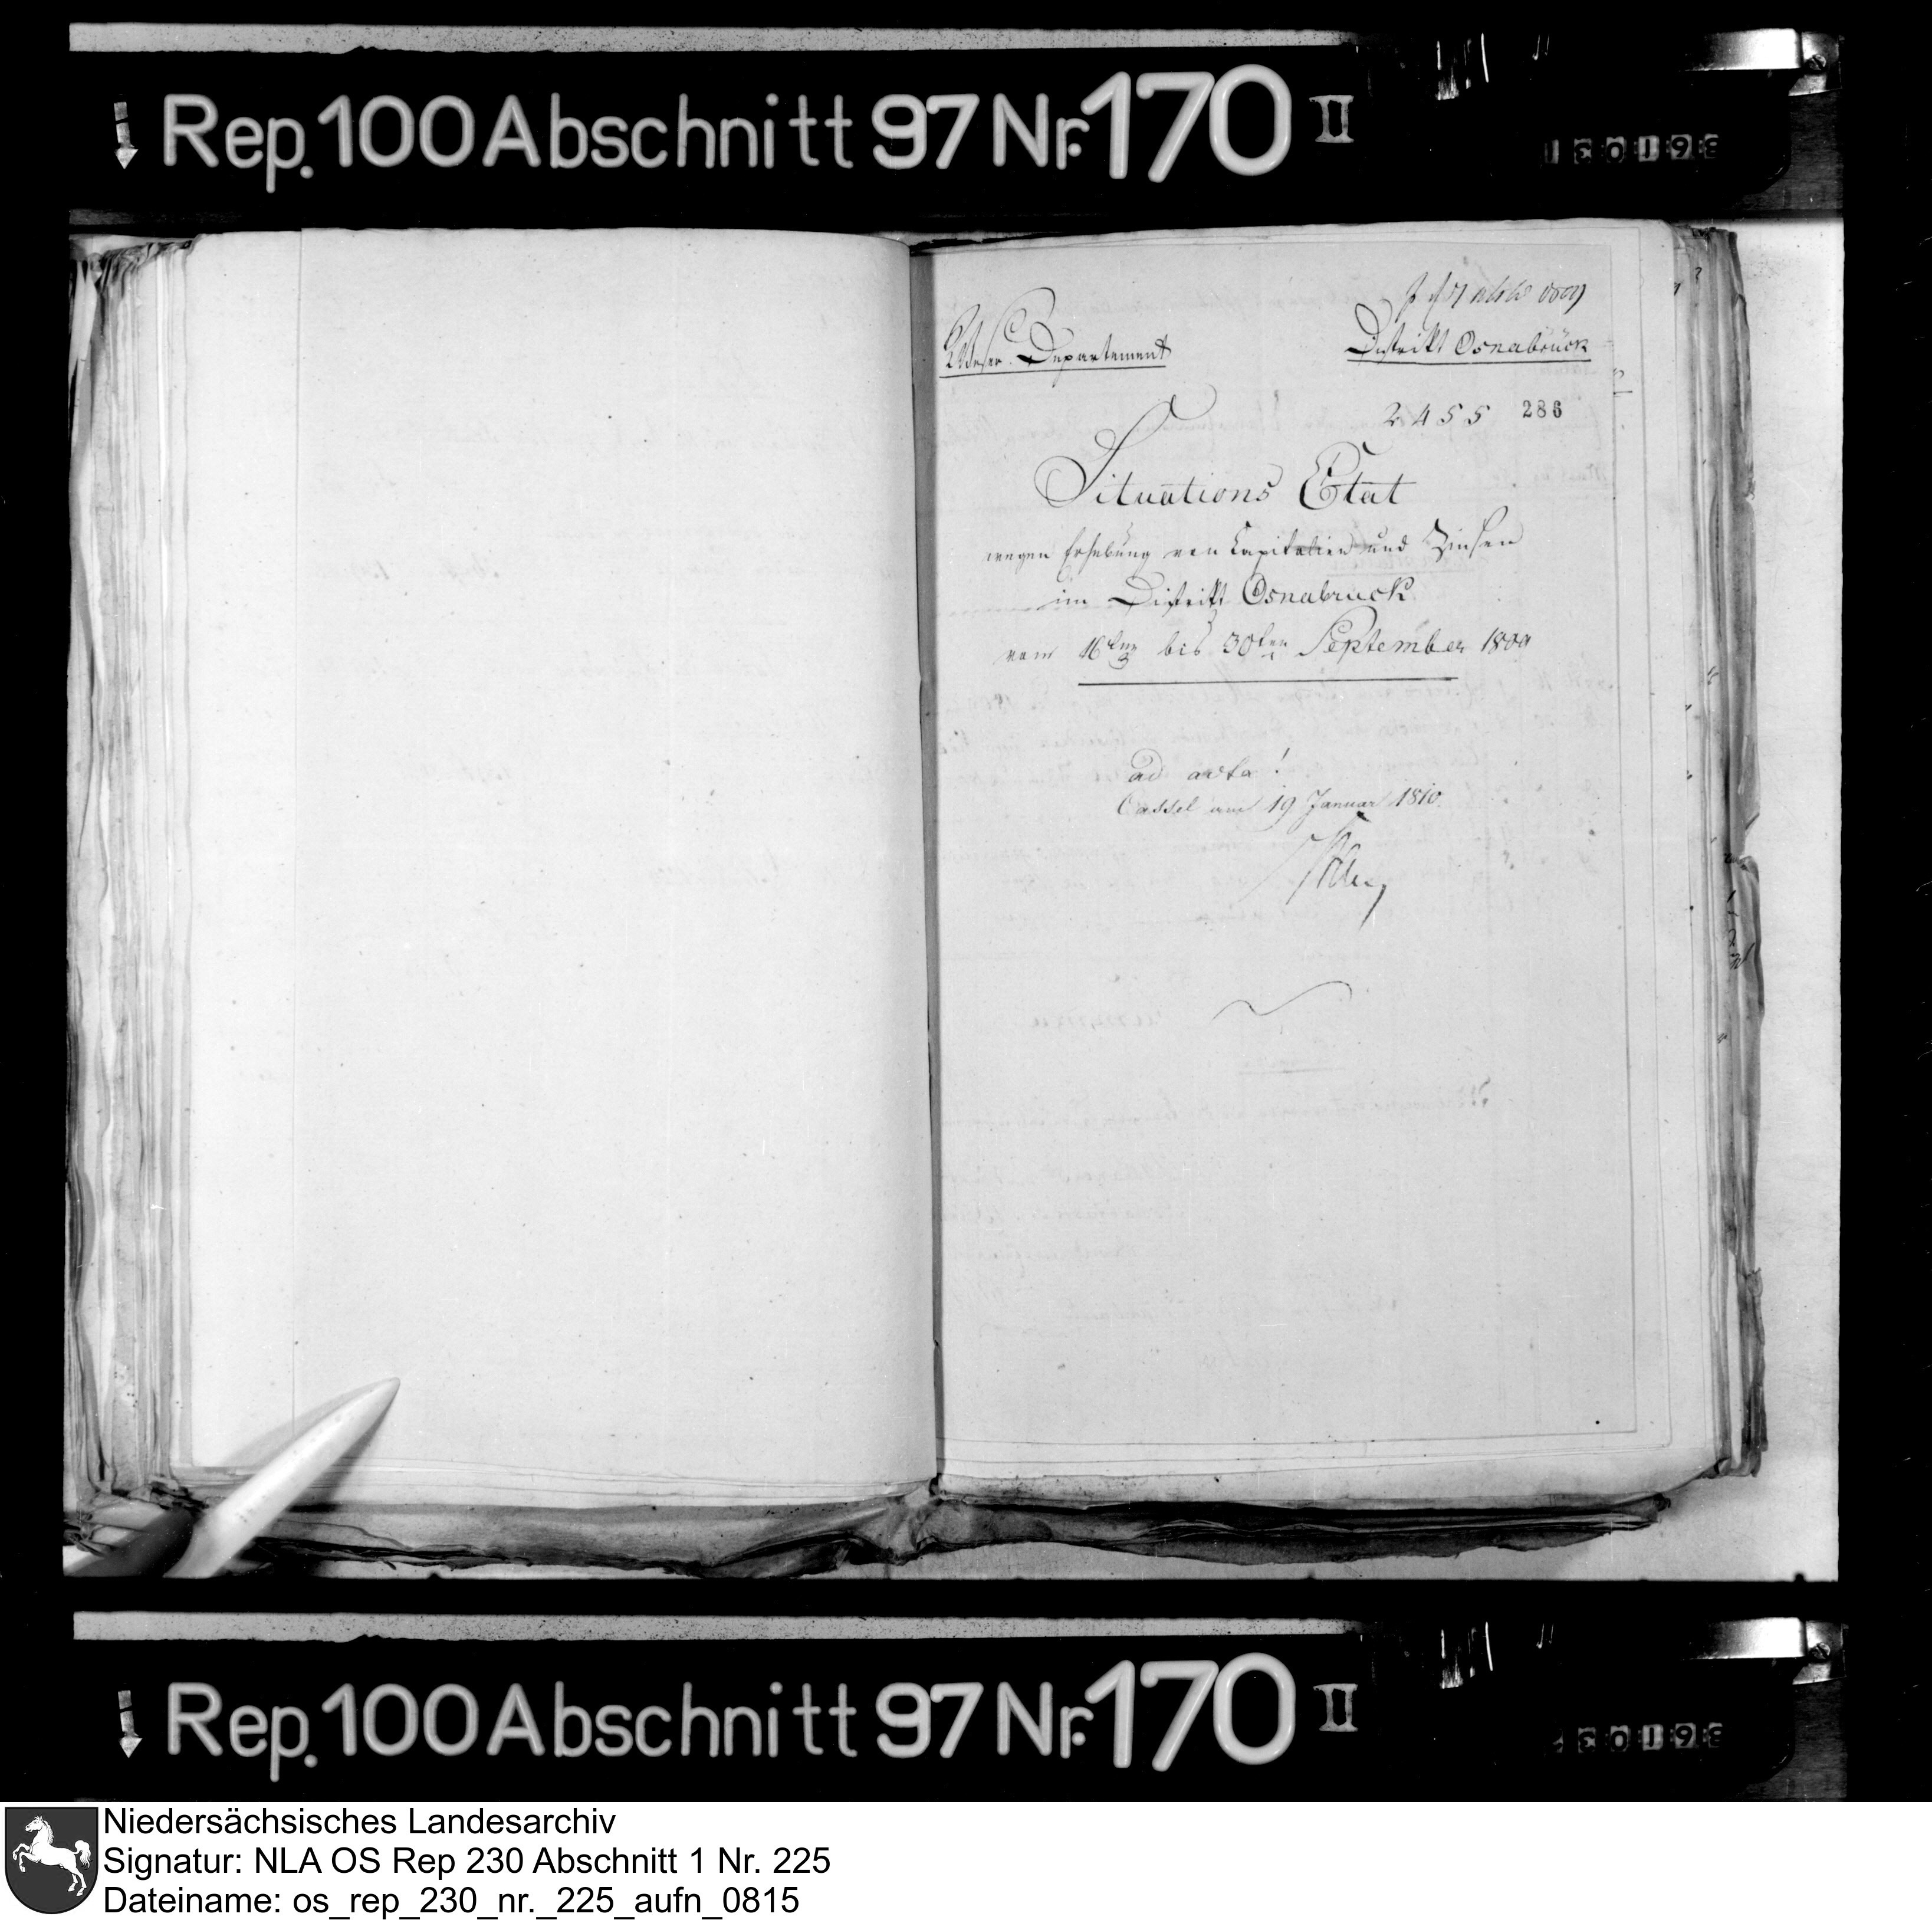 Rep. 100 Abschnitt 97 Nr. 170 II
Weser Departement
Distrikt Osnabrück
2455 286
Situations Etat
wegen Erhebung von Capitalien und Zinsen
im Distrikt Osnabrück
vom 16ten bis 30ten September 1809
ad acta!
Cassel am 19 Januar 1810.
Rep. 100 Abschnitt 97 Nr. 170 II
Niedersächsisches Landesarchiv
Signatur: NLA OS Rep 230 Abschnitt 1 Nr. 225
Dateiname: os_rep_230_nr._225_aufn_0815